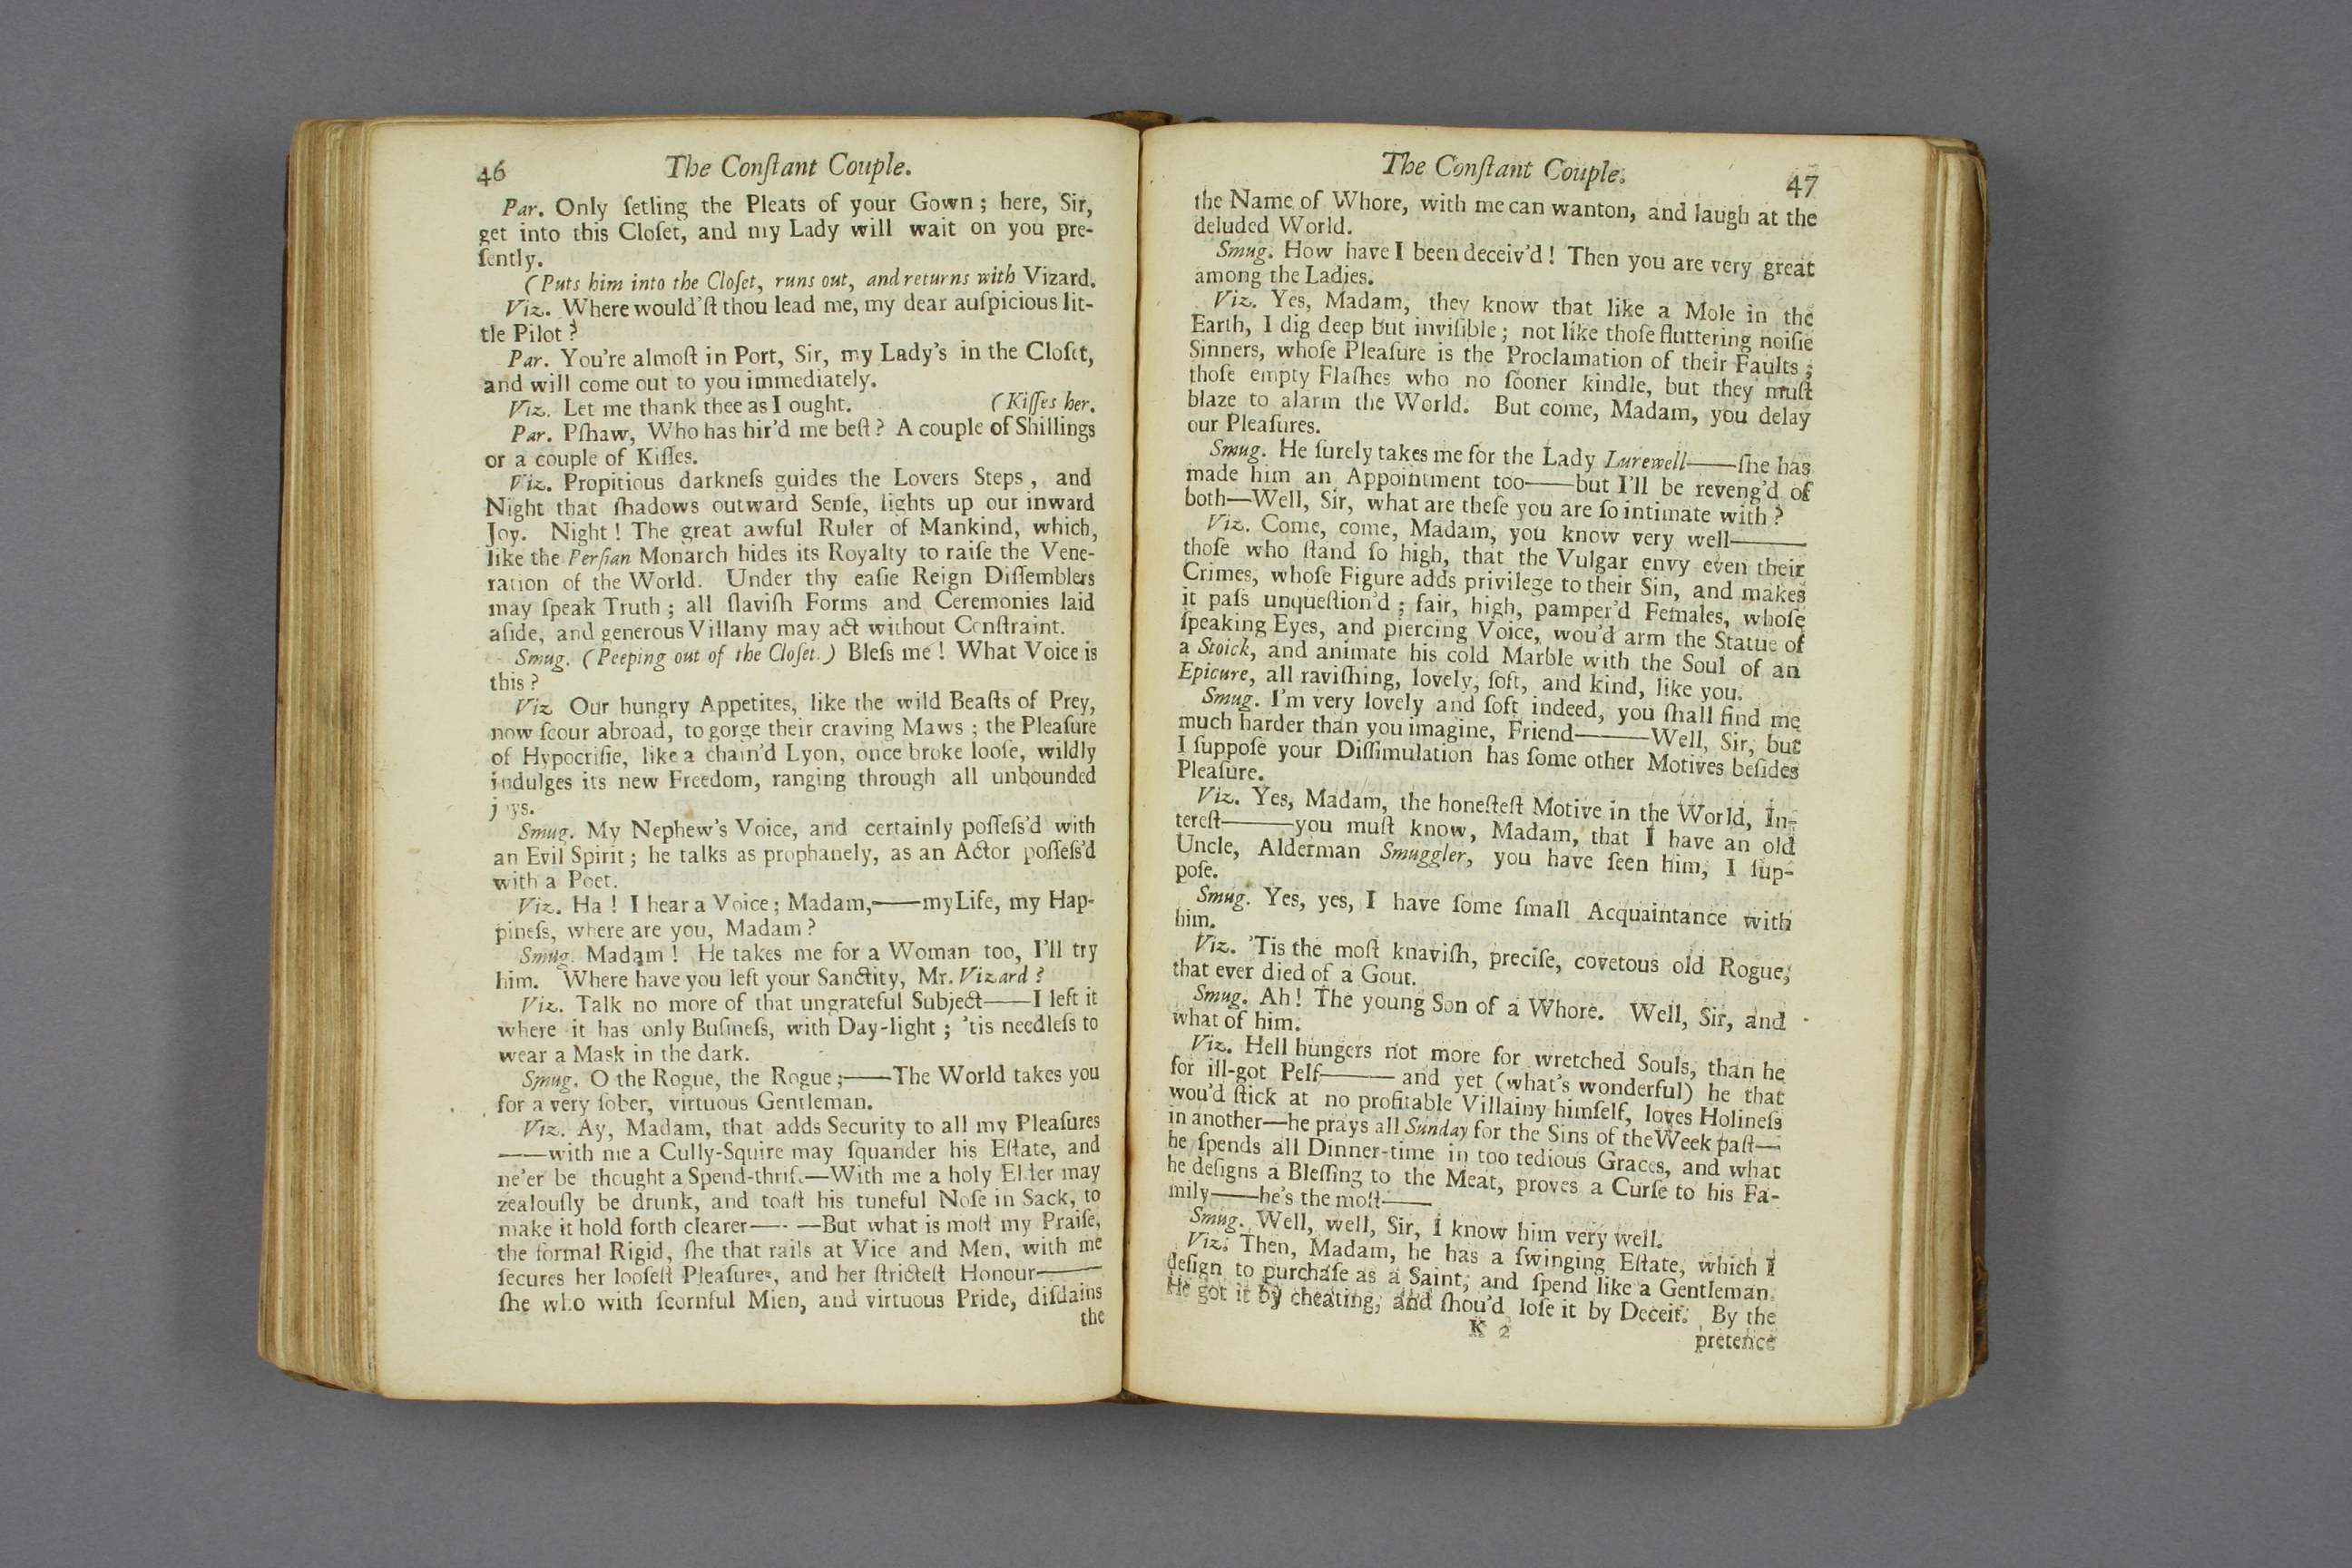 46
The Conſtant Couple.
Par. Only ſetling the Pleats of your Gown; here, Sir,
get into this Cloſet, and my Lady will wait on you pre-
ſently.
(Puts him into the Cloſet, runs out, and returns with Vizard.
Viz. Where would'ſt thou lead me, my dear auſpicious lit-
tle Pilot?
Par. You're almoſt in Port, Sir, my Lady's in the Cloſet,
and will come out to you immediately.
Viz. Let me thank thee as I ought. (Kiſſes her.
Par. Pſhaw, Who has hir'd me beſt? A couple of Shillings
or a couple of Kiſſes.
Viz. Propitious darkneſs guides the Lovers Steps, and
Night that ſhadows outward Senſe, lights up our inward
Joy. Night! The great awful Ruler of Mankind, which,
like the Perſian Monarch hides its Royalty to raiſe the Vene-
ration of the World. Under thy eaſie Reign Diſſemblers
may ſpeak Truth; all ſlaviſh Forms and Ceremonies laid
aſide, and generous Villany may act without Conſtraint.
Smug. (Peeping out of the Cloſet.) Bleſs me! What Voice is
this?
Viz Our hungry Appetites, like the wild Beaſts of Prey,
now ſcour abroad, to gorge their craving Maws; the Pleaſure
of Hypocriſie, like a chain'd Lyon, once broke looſe, wildly
indulges its new Freedom, ranging through all unbounded
joys.
Smug. My Nephew's Voice, and certainly poſſeſs'd with
an Evil Spirit; he talks as prophanely, as an Actor poſſeſs'd
with a Poet.
Viz. Ha! I hear a Voice; Madam,——my Life, my Hap-
pineſs, where are you, Madam?
Smug. Madam! He takes me for a Woman too, I'll try
him. Where have you left your Sanctity, Mr. Vizard?
Viz. Talk no more of that ungrateful Subject——I left it
where it has only Buſineſs, with Day-light; 'tis needleſs to
wear a Mask in the dark.
Smug. O the Rogue, the Rogue;——The World takes you
for a very ſober, virtuous Gentleman.
Viz. Ay, Madam, that adds Security to all my Pleaſures
——with me a Cully-Squire may ſquander his Eſtate, and
ne'er be thought a Spend-thrift.—With me a holy Elder may
zealouſly be drunk, and toaſt his tuneful Noſe in Sack, to
make it hold forth clearer—— —But what is moſt my Praiſe,
the formal Rigid, ſhe that rails at Vice and Men, with me
ſecures her looſeſt Pleaſures, and her ſtricteſt Honour——
ſhe who with ſcornful Mien, and virtuous Pride, diſdains
the
The Conſtant Couple.
47
the Name of Whore, with me can wanton, and laugh at the
deluded World.
Smug. How have I been deceiv'd! Then you are very great
among the Ladies.
Viz. Yes, Madam, they know that like a Mole in the
Earth, I dig deep but inviſible; not like thoſe fluttering noiſie
Sinners, whoſe Pleaſure is the Proclamation of their Faults;
thoſe empty Flaſhes who no ſooner kindle, but they muſt
blaze to alarm the World. But come, Madam, you delay
our Pleaſures.
Smug. He ſurely takes me for the Lady Lurewell——ſhe has
made him an Appointment too——but I'll be reveng'd of
both—Well, Sir, what are theſe you are ſo intimate with?
Viz. Come, come, Madam, you know very well———
thoſe who ſtand ſo high, that the Vulgar envy even their
Crimes, whoſe Figure adds privilege to their Sin, and makes
it paſs unqueſtion'd; fair, high, pamper'd Females, whoſe
ſpeaking Eyes, and piercing Voice, wou'd arm the Statue of
a Stoick, and animate his cold Marble with the Soul of an
Epicure, all raviſhing, lovely, ſoft, and kind, like you.
Smug. I'm very lovely and ſoft indeed, you ſhall find me
much harder than you imagine, Friend———Well, Sir, but
I ſuppoſe your Diſſimulation has ſome other Motives beſides
Pleaſure.
Viz. Yes, Madam, the honeſteſt Motive in the World, In-
tereſt———you muſt know, Madam, that I have an old
Uncle, Alderman Smuggler, you have ſeen him, I ſup-
poſe.
Smug. Yes, yes, I have ſome ſmall Acquaintance with
him.
Viz. 'Tis the moſt knaviſh, preciſe, covetous old Rogue,
that ever died of a Gout.
Smug. Ah! The young Son of a Whore. Well, Sir, and
what of him.
Viz. Hell hungers not more for wretched Souls, than he
for ill-got Pelf———and yet (what's wonderful) he that
wou'd ſtick at no profitable Villainy himſelf, loves Holineſs
in another—he prays all Sunday for the Sins of the Week paſt—
he ſpends all Dinner-time in too tedious Graces, and what
he deſigns a Bleſſing to the Meat, proves a Curſe to his Fa-
mily——he's the moſt——
Smug. Well, well, Sir, I know him very well.
Viz. Then, Madam, he has a ſwinging Eſtate, which I
deſign to purchaſe as a Saint, and ſpend like a Gentleman.
He got it by cheating, and ſhou'd loſe it by Deceit. By the
K 2
pretence